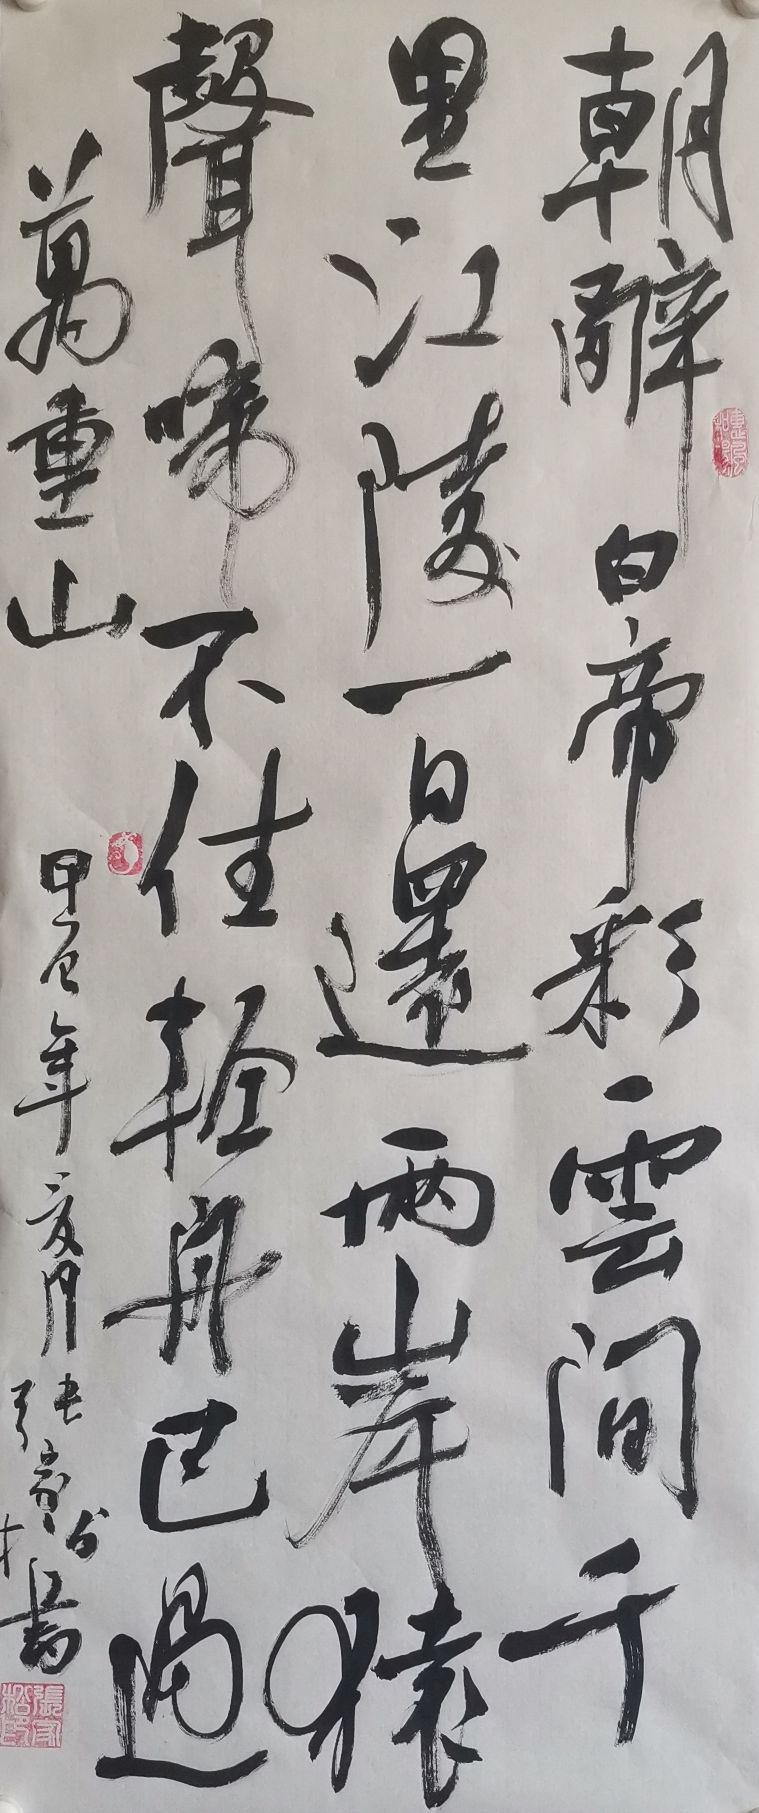 朝辭白帝彩雲間千
里江陵一日還兩岸猿
聲啼不住輕舟已過
萬重山
甲辰年夏月張家松書
張家松印